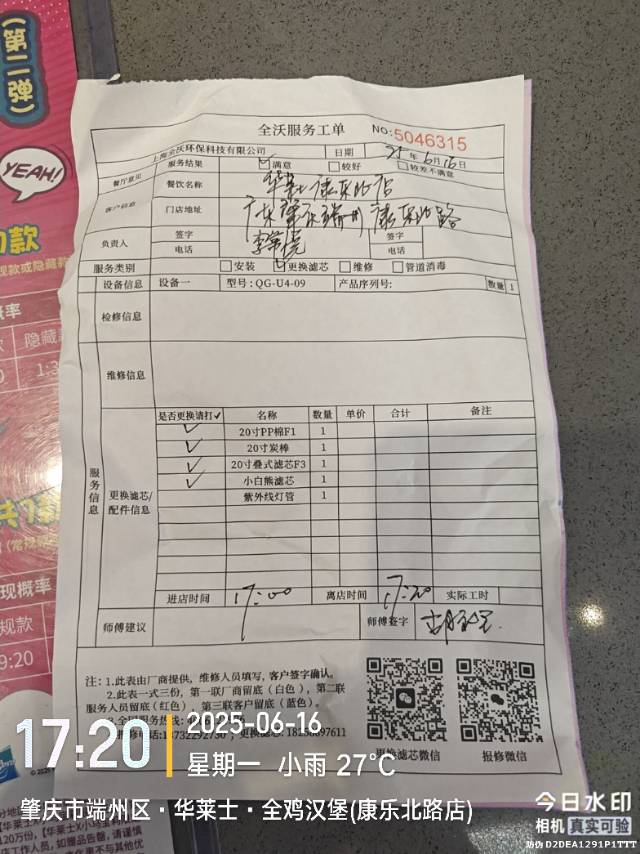 (第二弹)
YEAH!
全沃服务工单
NO:5046315
上海全沃环保科技有限公司 日期 25年6月16日
餐厅意见 服务结果 ☑满意 □较好 □较差不满意
客户信息 餐饮名称 华莱士康乐北店
门店地址 广东肇庆端州康乐北路
负责人 签字 签字
电话 电话
服务类别 □安装 ☑更换滤芯 □维修 □管道消毒
设备信息 设备一 型号:QG-U4-09 产品序列号: 数量 1
检修信息
维修信息
服务信息
更换滤芯/配件信息
是否更换请打✓ 名称 数量 单价 合计 备注
✓ 20寸PP棉F1 1
✓ 20寸炭棒 1
✓ 20寸叠式滤芯F3 1
✓ 小白熊滤芯 1
紫外线灯管 1
进店时间 17:00 离店时间 17:20 实际工时
师傅建议 师傅签字
注:1.此表由厂商提供,维修人员填写,客户签字确认。
2.此表一式三份,第一联厂商留底(白色),第二联
服务人员留底(红色),第三联客户留底(蓝色)。
更换滤芯微信 报修微信
17:20
2025-06-16
星期一 小雨 27°C
肇庆市端州区·华莱士·全鸡汉堡(康乐北路店)
今日水印
相机 真实可验
防伪 D2DEA1291P1TTT
现概率
规款
9:20